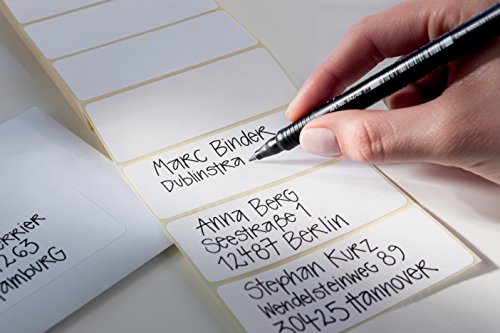 Marc Binder
Dublinstra
Anna Berg
Seestraße 1
12487 Berlin
Stephan Kurz
Wendelsteinweg 89
30425 Hannover